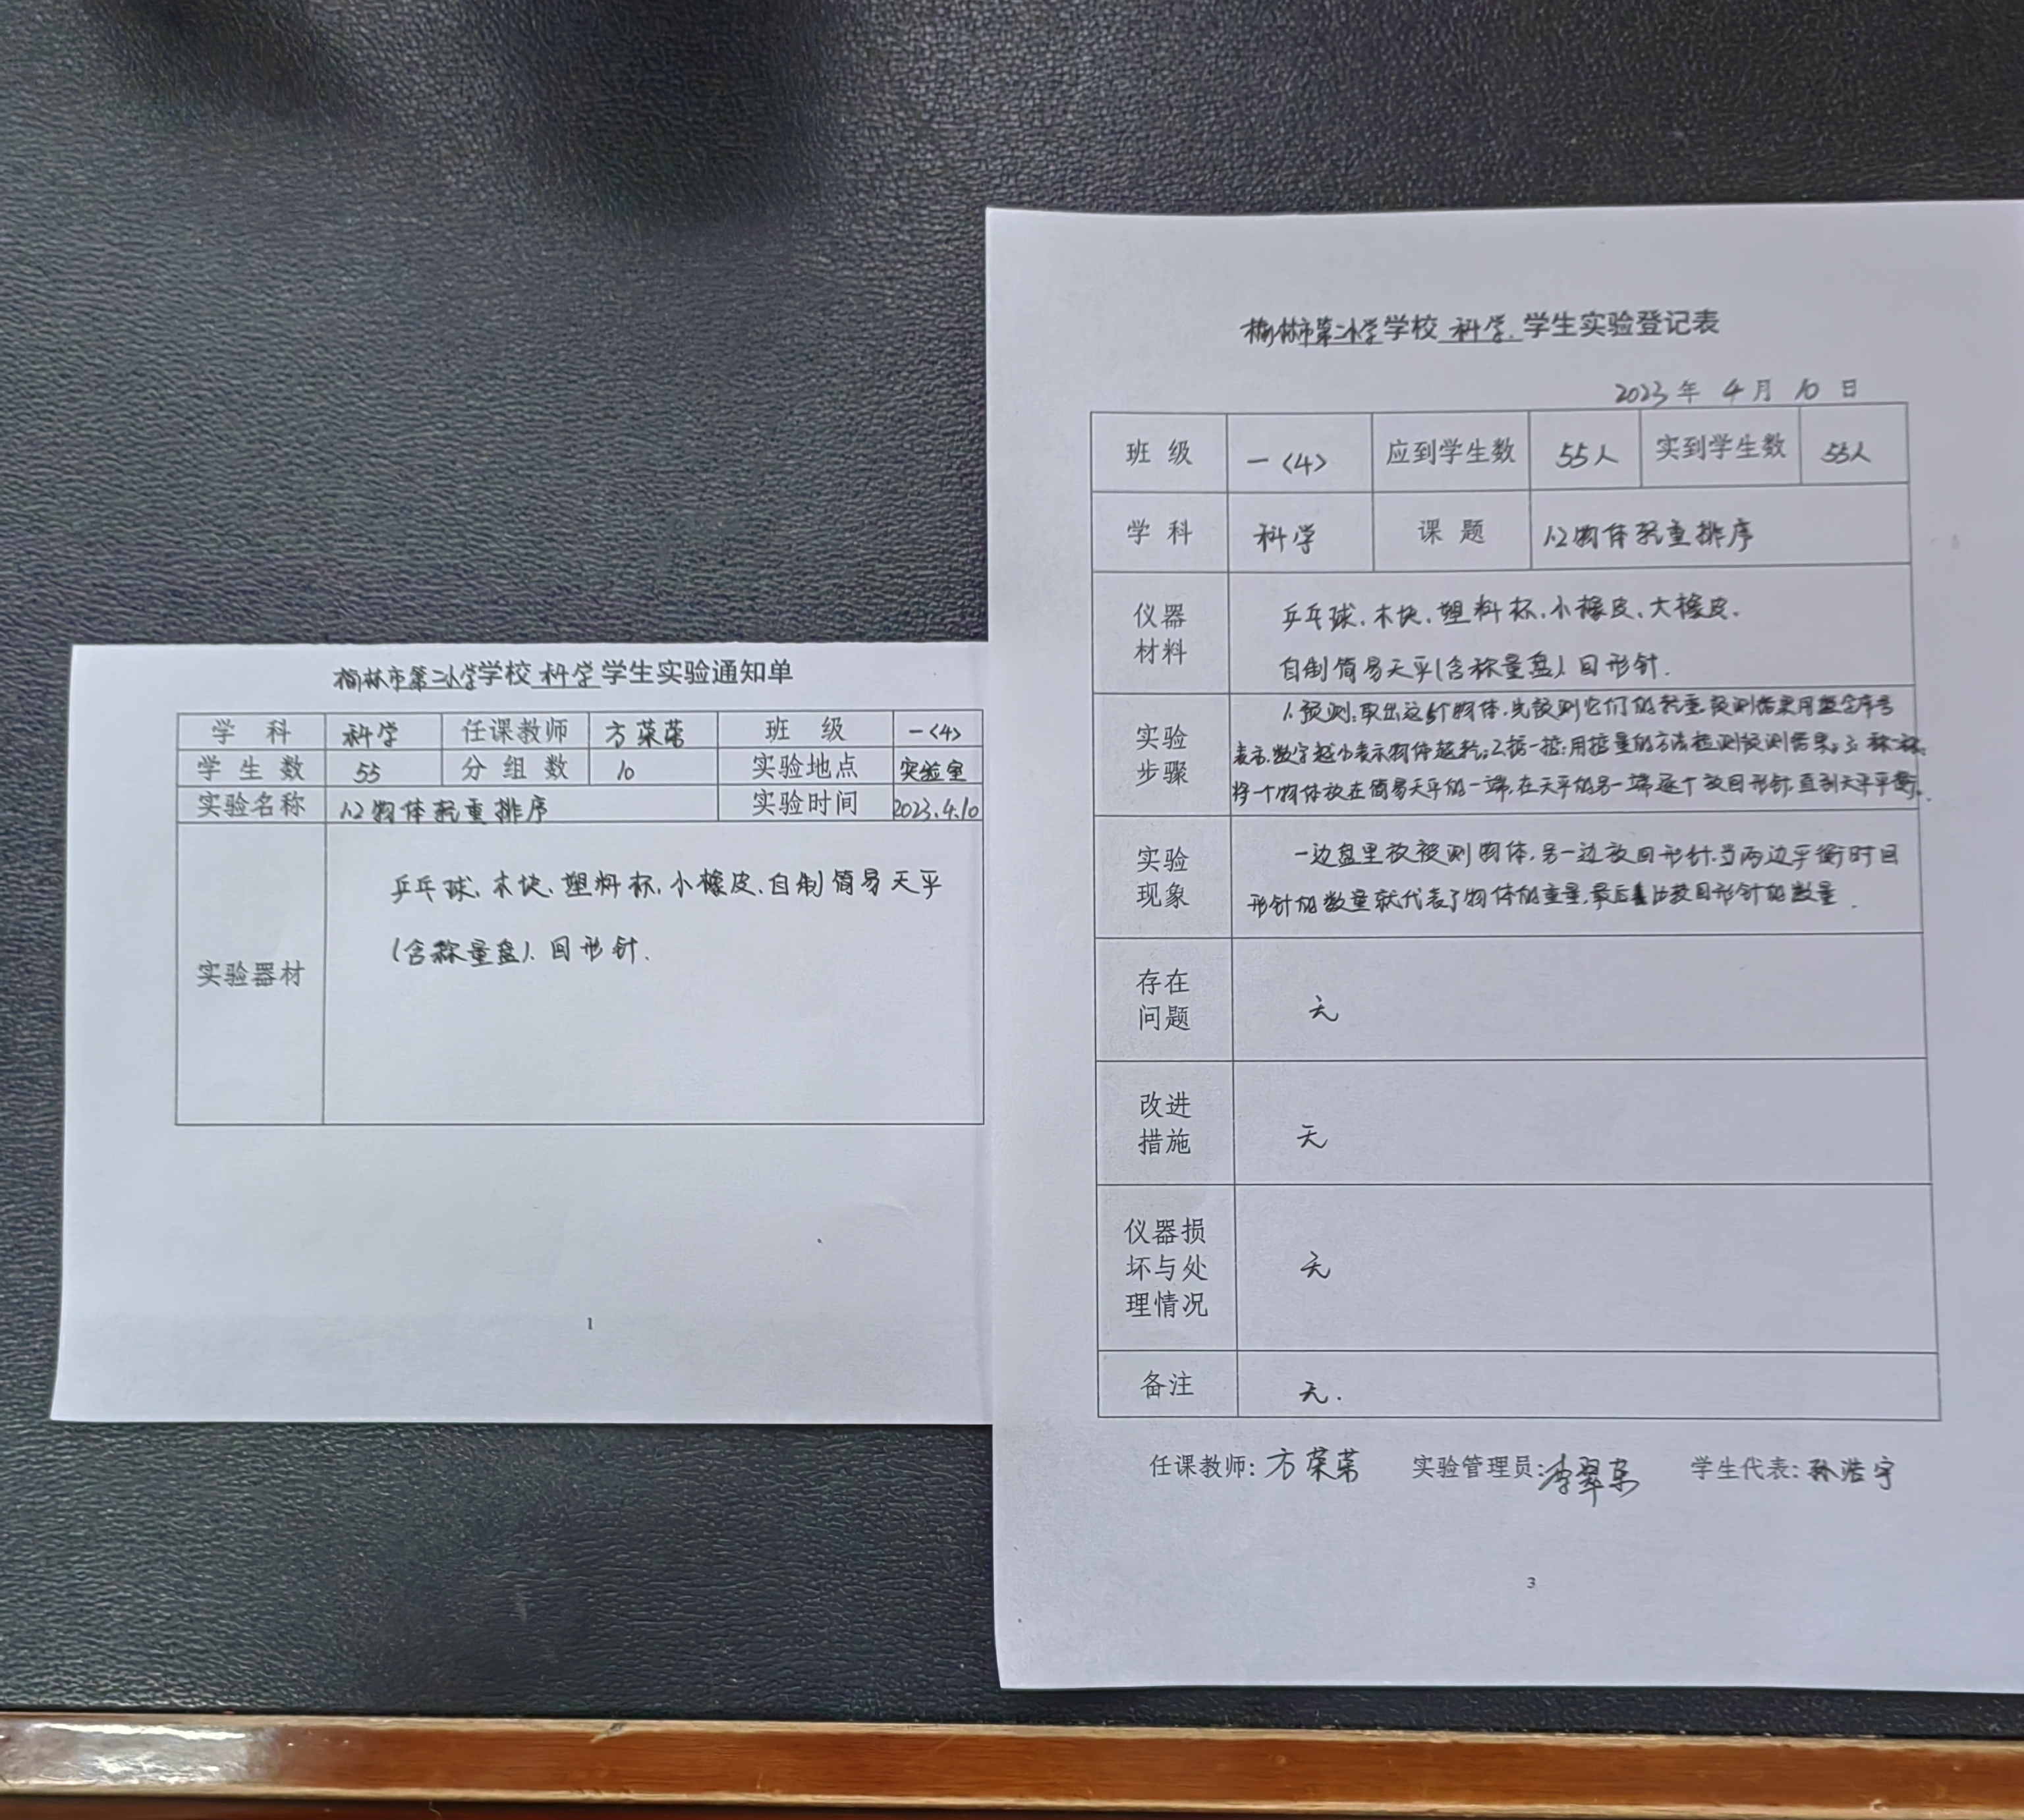 榆林市第二小学学校 科学 学生实验通知单
学 科 科学 任课教师 方荣荣 班 级 一<4>
学 生 数 55 分 组 数 10 实验地点 实验室
实验名称 1.2物体轻重排序 实验时间 2023.4.10
实验器材
乒乓球、木块、塑料杯、小橡皮、自制简易天平
(含称量盘)、回形针.
1
榆林市第二小学学校 科学 学生实验登记表
2023 年 4 月 10 日
班 级 一<4> 应到学生数 55人 实到学生数 55人
学 科 科学 课 题 1.2物体轻重排序
仪器
材料
乒乓球、木块、塑料杯、小橡皮、大橡皮.
自制简易天平(含称量盘)、回形针.
实验
步骤
1.预测:取出这5个物体,先预测它们的轻重,预测结果用整仓序号
表示,数字越小表示物体越轻;2.掂一掂:用掂量的方法检测预测结果。3.称一称:
将一个物体放在简易天平的一端,在天平的另一端逐个放回形针,直到天平平衡。
实验
现象
一边盘里放被测物体,另一边放回形针,当两边平衡时回
形针的数量就代表了物体的重量,最后比较回形针的数量.
存在
问题
无
改进
措施
无
仪器损
坏与处
理情况
无
备注
无.
任课教师: 方荣荣 实验管理员: 李翠 学生代表: 孙浩宇
3